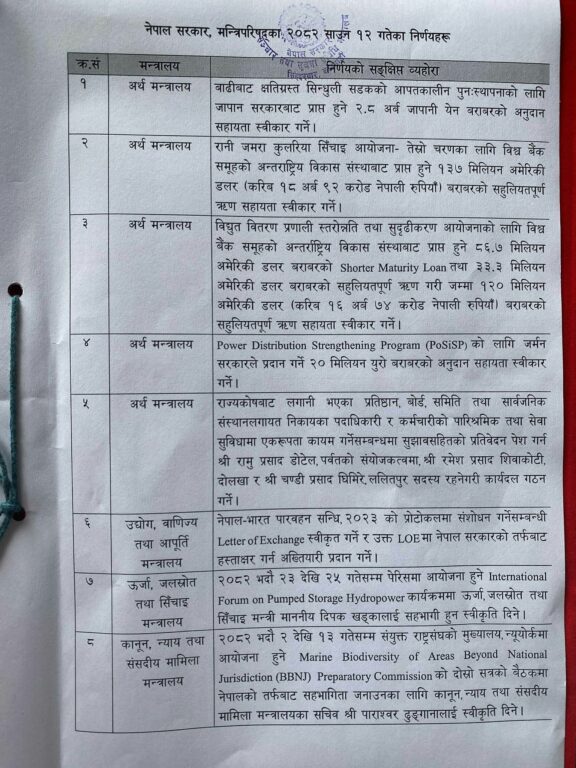 नेपाल सरकार, मन्त्रिपरिषद्का २०८२ साउन १२ गतेका निर्णयहरू
क्र.सं मन्त्रालय निर्णयको सङ्क्षिप्त व्यहोरा
१ अर्थ मन्त्रालय बाढीबाट क्षतिग्रस्त सिन्धुली सडकको आपतकालीन पुनःस्थापनाको लागि
जापान सरकारबाट प्राप्त हुने २.८ अर्ब जापानी येन बराबरको अनुदान
सहायता स्वीकार गर्ने।
२ अर्थ मन्त्रालय रानी जमरा कुलरिया सिँचाइ आयोजना- तेस्रो चरणका लागि विश्व बैंक
समूहको अन्तराष्ट्रिय विकास संस्थाबाट प्राप्त हुने १३७ मिलियन अमेरिकी
डलर (करिब १८ अर्ब ९२ करोड नेपाली रुपियाँ) बराबरको सहुलियतपूर्ण
ऋण सहायता स्वीकार गर्ने।
३ अर्थ मन्त्रालय विद्युत वितरण प्रणाली स्तरोन्नति तथा सुदृढीकरण आयोजनाको लागि विश्व
बैंक समूहको अन्तर्राष्ट्रिय विकास संस्थाबाट प्राप्त हुने ८६.७ मिलियन
अमेरिकी डलर बराबरको Shorter Maturity Loan तथा ३३.३ मिलियन
अमेरिकी डलर बराबरको सहुलियतपूर्ण ऋण गरी जम्मा १२० मिलियन
अमेरिकी डलर (करिब १६ अर्ब ७४ करोड नेपाली रुपियाँ) बराबरको
सहुलियतपूर्ण ऋण सहायता स्वीकार गर्ने।
४ अर्थ मन्त्रालय Power Distribution Strengthening Program (PoSiSP) को लागि जर्मन
सरकारले प्रदान गर्ने २० मिलियन युरो बराबरको अनुदान सहायता स्वीकार
गर्ने।
५ अर्थ मन्त्रालय राज्यकोषबाट लगानी भएका प्रतिष्ठान, बोर्ड, समिति तथा सार्वजनिक
संस्थानलगायत निकायका पदाधिकारी र कर्मचारीको पारिश्रमिक तथा सेवा
सुविधामा एकरूपता कायम गर्नेसम्बन्धमा सुझावसहितको प्रतिवेदन पेश गर्न
श्री रामु प्रसाद डोटेल, पर्वतको संयोजकत्वमा, श्री रमेश प्रसाद शिवाकोटी,
दोलखा र श्री चण्डी प्रसाद घिमिरे, ललितपुर सदस्य रहनेगरी कार्यदल गठन
गर्ने।
६ उद्योग, वाणिज्य नेपाल-भारत पारवहन सन्धि, २०२३ को प्रोटोकलमा संशोधन गर्नेसम्बन्धी
तथा आपूर्ति Letter of Exchange स्वीकृत गर्ने र उक्त LOE मा नेपाल सरकारको तर्फबाट
मन्त्रालय हस्ताक्षर गर्न अख्तियारी प्रदान गर्ने।
७ ऊर्जा, जलस्रोत २०८२ भदौ २३ देखि २५ गतेसम्म पेरिसमा आयोजना हुने International
तथा सिँचाइ Forum on Pumped Storage Hydropower कार्यक्रममा ऊर्जा, जलस्रोत तथा
मन्त्रालय सिँचाइ मन्त्री माननीय दिपक खड्कालाई सहभागी हुन स्वीकृति दिने।
८ कानून, न्याय तथा २०८२ भदौ २ देखि १३ गतेसम्म संयुक्त राष्ट्रसंघको मुख्यालय, न्यूयोर्कमा
संसदीय मामिला आयोजना हुने Marine Biodiversity of Areas Beyond National
मन्त्रालय Jurisdiction (BBNJ) Preparatory Commission को दोस्रो सत्रको बैठकमा
नेपालको तर्फबाट सहभागिता जनाउनका लागि कानून, न्याय तथा संसदीय
मामिला मन्त्रालयका सचिव श्री पाराश्वर ढुङ्गानालाई स्वीकृति दिने।